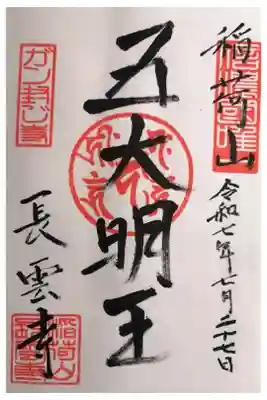 稲荷山
令和七年七月二十七日
五大明王
ガン封じ寺
長雲寺
稲荷山
長雲寺